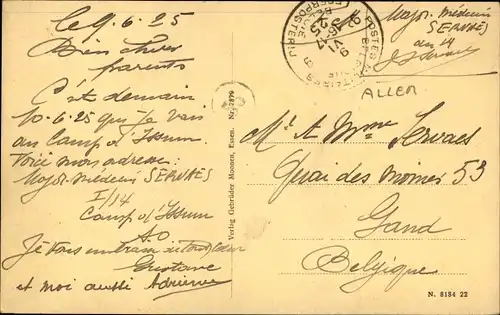 le 9.6.25
Bien chers
parents
C'est demain
10.6.25 que je vais
au Camp d'Issum.
Voici mon adresse:
Major-médecin SERVAES
I/14
Camp d'Issum
Je vous
Gustave
et moi aussi Adrienne
Verlag Gebrüder Monnen, Essen. Nr. 7879
POSTES MILITAIRES
BELGIQUE
LEGERPOSTERIJ
9 VI
16-17
25
Major-médecin
SERVAES
du 14
ALLEM
Mr et Mme Servaes
Quai des moines 53
Gand
Belgique
N. 8184 22